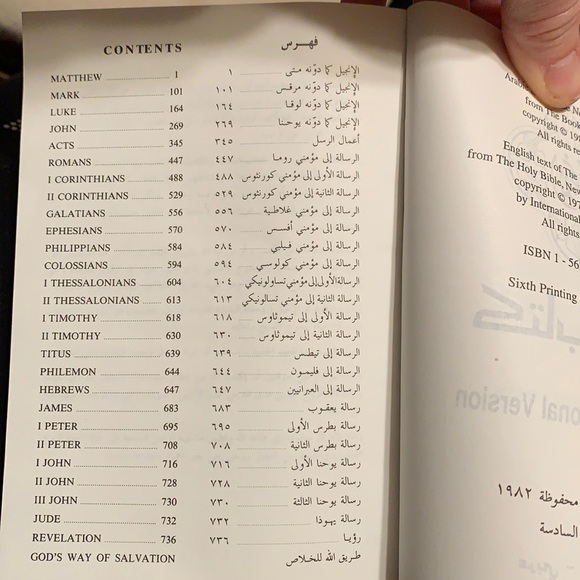 CONTENTS فهرس
MATTHEW 1 ١ الإنجيل كما دوّنه متى
MARK 101 ١٠١ الإنجيل كما دوّنه مرقس
LUKE 164 ١٦٤ الإنجيل كما دوّنه لوقا
JOHN 269 ٢٦٩ الإنجيل كما دوّنه يوحنا
ACTS 345 ٣٤٥ أعمال الرسل
ROMANS 447 ٤٤٧ الرسالة إلى مؤمني روما
I CORINTHIANS 488 ٤٨٨ الرسالة الأولى إلى مؤمني كورنثوس
II CORINTHIANS 529 ٥٢٩ الرسالة الثانية إلى مؤمني كورنثوس
GALATIANS 556 ٥٥٦ الرسالة إلى مؤمني غلاطية
EPHESIANS 570 ٥٧٠ الرسالة إلى مؤمني أفسس
PHILIPPIANS 584 ٥٨٤ الرسالة إلى مؤمني فيلبي
COLOSSIANS 594 ٥٩٤ الرسالة إلى مؤمني كولوسي
I THESSALONIANS 604 ٦٠٤ الرسالة الأولى إلى مؤمني تسالونيكي
II THESSALONIANS 613 ٦١٣ الرسالة الثانية إلى مؤمني تسالونيكي
I TIMOTHY 618 ٦١٨ الرسالة الأولى إلى تيموثاوس
II TIMOTHY 630 ٦٣٠ الرسالة الثانية إلى تيموثاوس
TITUS 639 ٦٣٩ الرسالة إلى تيطس
PHILEMON 644 ٦٤٤ الرسالة إلى فليمون
HEBREWS 647 ٦٤٧ الرسالة إلى العبرانيين
JAMES 683 ٦٨٣ رسالة يعقوب
I PETER 695 ٦٩٥ رسالة بطرس الأولى
II PETER 708 ٧٠٨ رسالة بطرس الثانية
I JOHN 716 ٧١٦ رسالة يوحنا الأولى
II JOHN 728 ٧٢٨ رسالة يوحنا الثانية
III JOHN 730 ٧٣٠ رسالة يوحنا الثالثة
JUDE 732 ٧٣٢ رسالة يهوذا
REVELATION 736 ٧٣٦ رؤيا
GOD'S WAY OF SALVATION طريق الله للخلاص
from The Book
copyright ©
All rights
English text of The
from The Holy Bible, New
copyright © 197
by International
All rights
ISBN 1 - 56
Sixth Printing
محفوظة ١٩٨٢
السادسة